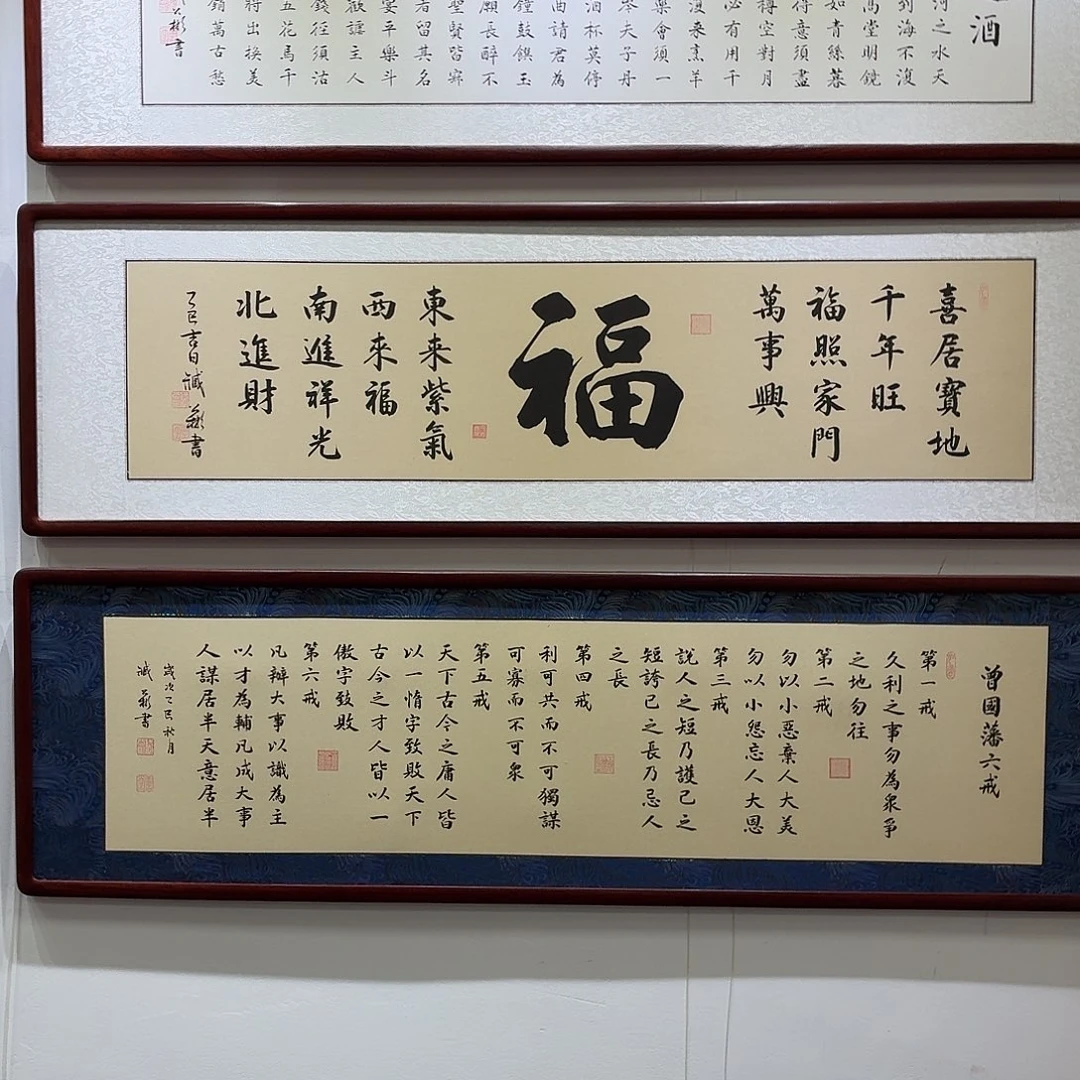 酒
河之水天
到海不復
高堂明鏡
如青絲暮
得意須盡
樽空對月
必有用千
復来烹羊
樂會須一
岑夫子丹
酒杯莫停
曲請君為
鐘鼓饌玉
願長醉不
聖賢皆寂
者留其名
宴平樂斗
歡謔主人
錢徑須沽
五花馬千
將出換美
銷萬古愁
彬書
喜居寶地
千年旺
福照家門
萬事興
福
東来紫氣
西來福
南進祥光
北進財
乙巳吉日誠彬書
曾國藩六戒
第一戒
久利之事勿為衆爭
之地勿往
第二戒
勿以小惡棄人大美
勿以小怨忘人大恩
第三戒
說人之短乃護己之
短誇己之長乃忌人
之長
第四戒
利可共而不可獨謀
可寡而不可衆
第五戒
天下古今之庸人皆
以一惰字致敗天下
古今之才人皆以一
傲字致敗
第六戒
凡辦大事以識為主
以才為輔凡成大事
人謀居半天意居半
歲次乙巳秋月
誠彬書